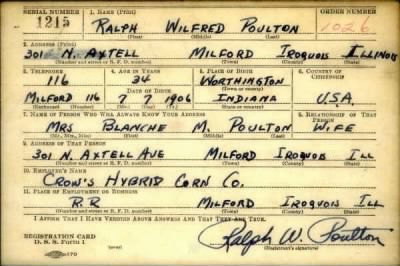 SERIAL NUMBER 1. NAME (Print) ORDER NUMBER
1215 RALPH WILFRED POULTON 1026
(First) (Middle) (Last)
2. ADDRESS (Print)
301 N. AXTELL MILFORD IROQUOIS ILLINOIS
(Number and street or R. F. D. number) (Town) (County) (State)
3. TELEPHONE 4. AGE IN YEARS 5. PLACE OF BIRTH 6. COUNTRY OF CITIZENSHIP
116 34 WORTHINGTON
DATE OF BIRTH (Town or county)
MILFORD 116 7 7 1906 INDIANA U.S.A.
(Exchange) (Number) (Mo.) (Day) (Yr.) (State or country)
7. NAME OF PERSON WHO WILL ALWAYS KNOW YOUR ADDRESS 8. RELATIONSHIP OF THAT PERSON
MRS BLANCHE M. POULTON WIFE
(Mr., Mrs., Miss) (First) (Middle) (Last)
9. ADDRESS OF THAT PERSON
301 N. AXTELL AVE MILFORD IROQUOIS ILL
(Number and street or R. F. D. number) (Town) (County) (State)
10. EMPLOYER'S NAME
CROW'S HYBRID CORN CO.
11. PLACE OF EMPLOYMENT OR BUSINESS
R.R MILFORD IROQUOIS ILL
(Number and street or R. F. D. number) (Town) (County) (State)
I AFFIRM THAT I HAVE VERIFIED ABOVE ANSWERS AND THAT THEY ARE TRUE.
REGISTRATION CARD
D. S. S. Form 1 Ralph W. Poulton
(Registrant's signature)